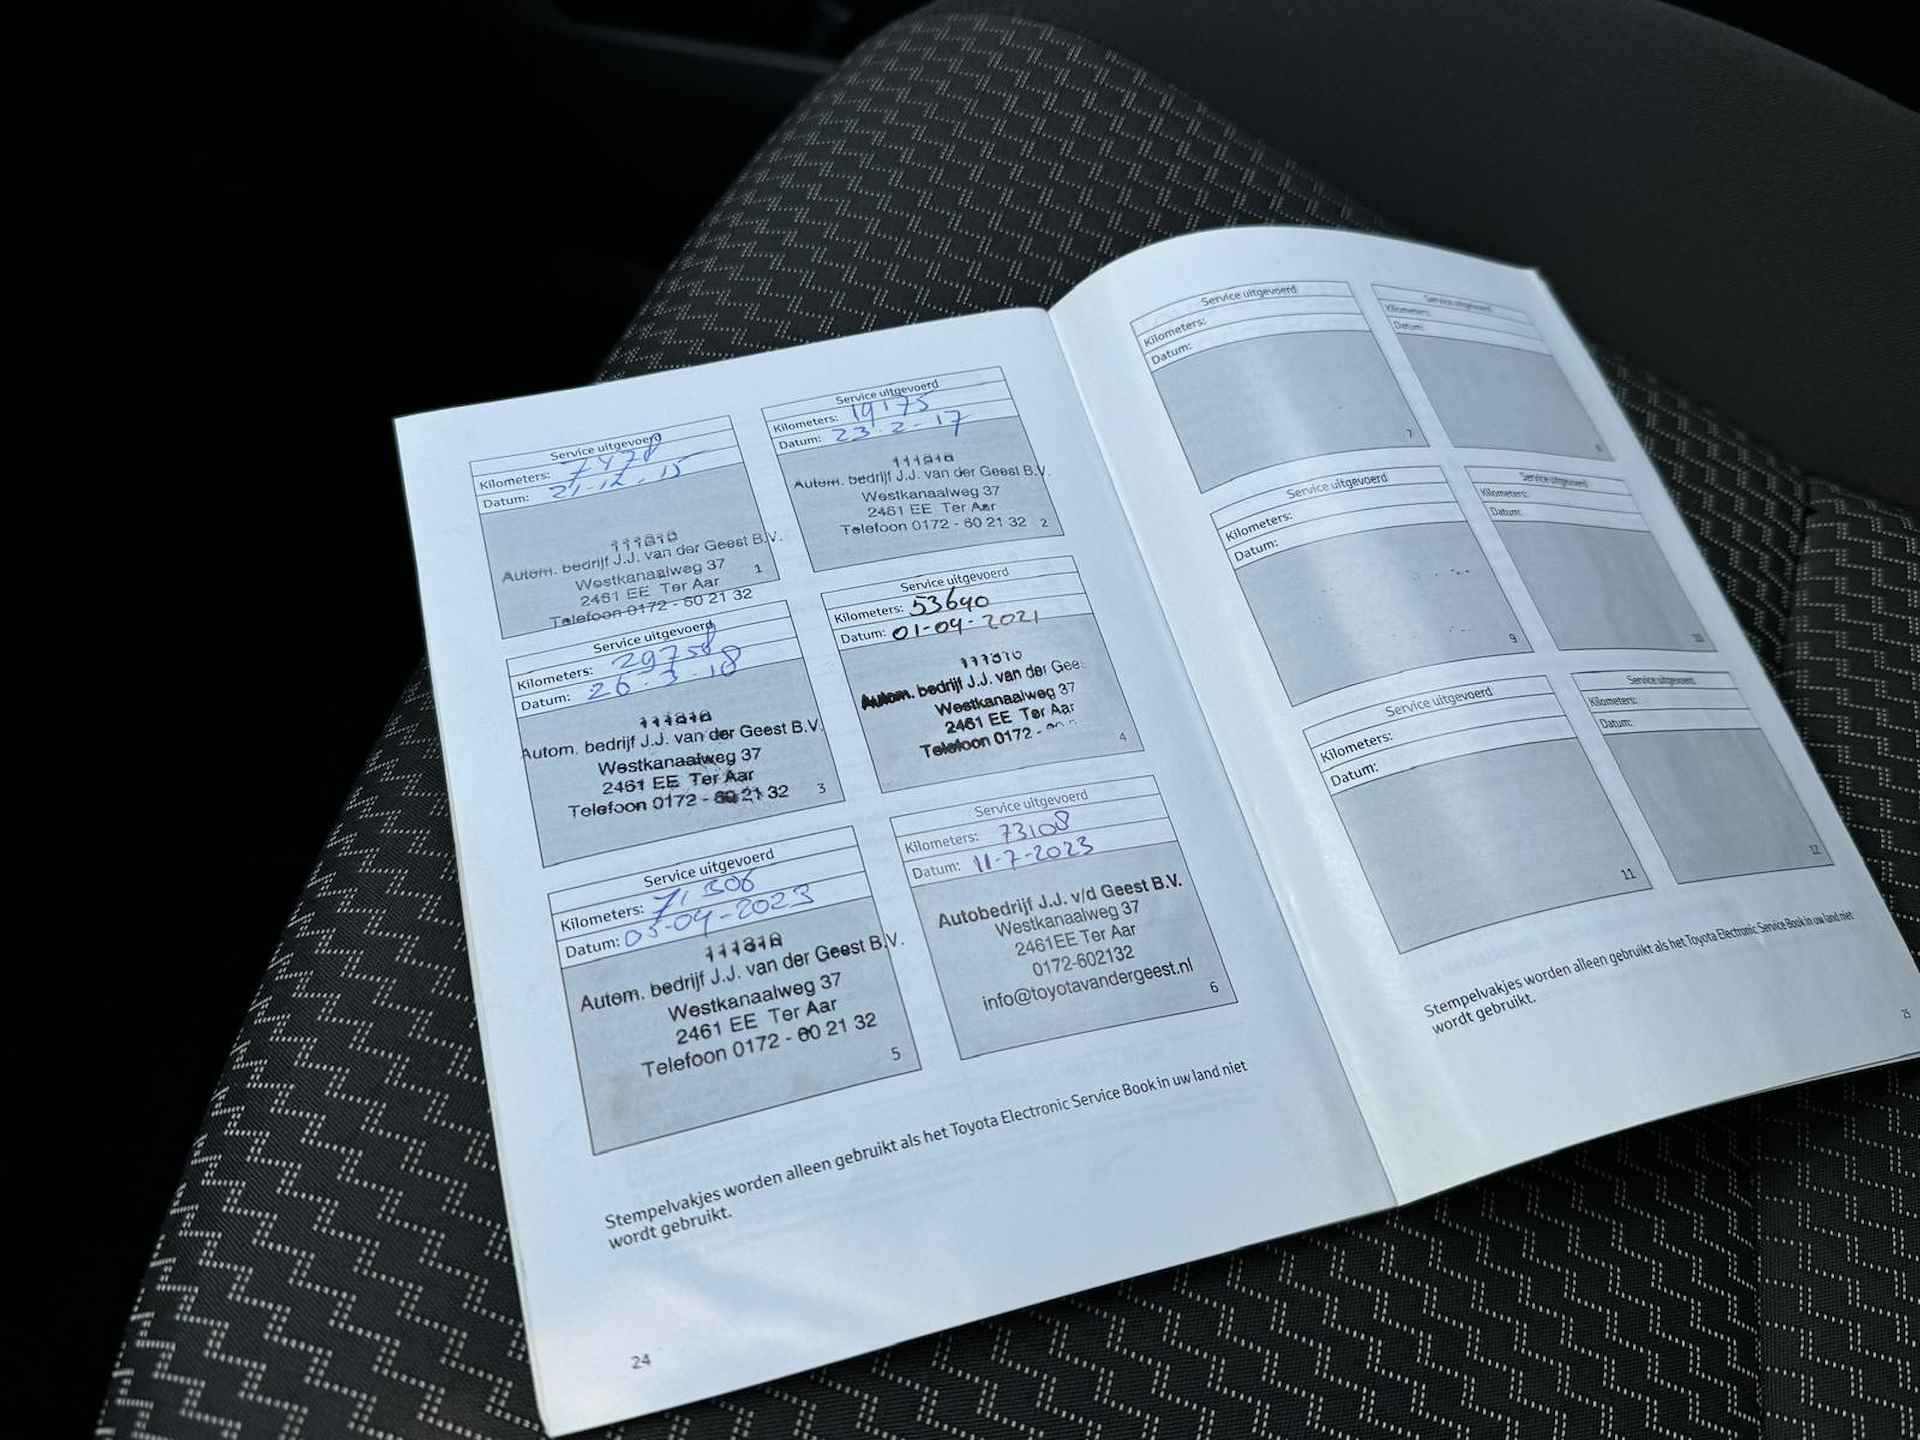 Service uitgevoerd
Kilometers: 7478
Datum: 21-12.15
111810
Autom. bedrijf J.J. van der Geest B.V.
Westkanaalweg 37
2461 EE Ter Aar
Telefoon 0172 - 60 21 32
1
Service uitgevoerd
Kilometers: 19175
Datum: 23.2-17
111810
Autom. bedrijf J.J. van der Geest B.V.
Westkanaalweg 37
2461 EE Ter Aar
Telefoon 0172 - 60 21 32
2
Service uitgevoerd
Kilometers: 29758
Datum: 26.3.18
111810
Autom. bedrijf J.J. van der Geest B.V.
Westkanaalweg 37
2461 EE Ter Aar
Telefoon 0172 - 60 21 32
3
Service uitgevoerd
Kilometers: 53640
Datum: 01-04-2021
111810
Autom. bedrijf J.J. van der Gees
Westkanaalweg 37
2461 EE Ter Aar
Telefoon 0172 -
4
Service uitgevoerd
Kilometers: 71306
Datum: 03-04-2023
111810
Autom. bedrijf J.J. van der Geest B.V.
Westkanaalweg 37
2461 EE Ter Aar
Telefoon 0172 - 60 21 32
5
Service uitgevoerd
Kilometers: 73108
Datum: 11-7-2023
Autobedrijf J.J. v/d Geest B.V.
Westkanaalweg 37
2461EE Ter Aar
0172-602132
info@toyotavandergeest.nl
6
Stempelvakjes worden alleen gebruikt als het Toyota Electronic Service Book in uw land niet
wordt gebruikt.
24
Service uitgevoerd
Kilometers:
Datum:
7
Service uitgevoerd
Kilometers:
Datum:
8
Service uitgevoerd
Kilometers:
Datum:
9
Service uitgevoerd
Kilometers:
Datum:
10
Service uitgevoerd
Kilometers:
Datum:
11
Service uitgevoerd
Kilometers:
Datum:
12
Stempelvakjes worden alleen gebruikt als het Toyota Electronic Service Book in uw land niet
wordt gebruikt.
25